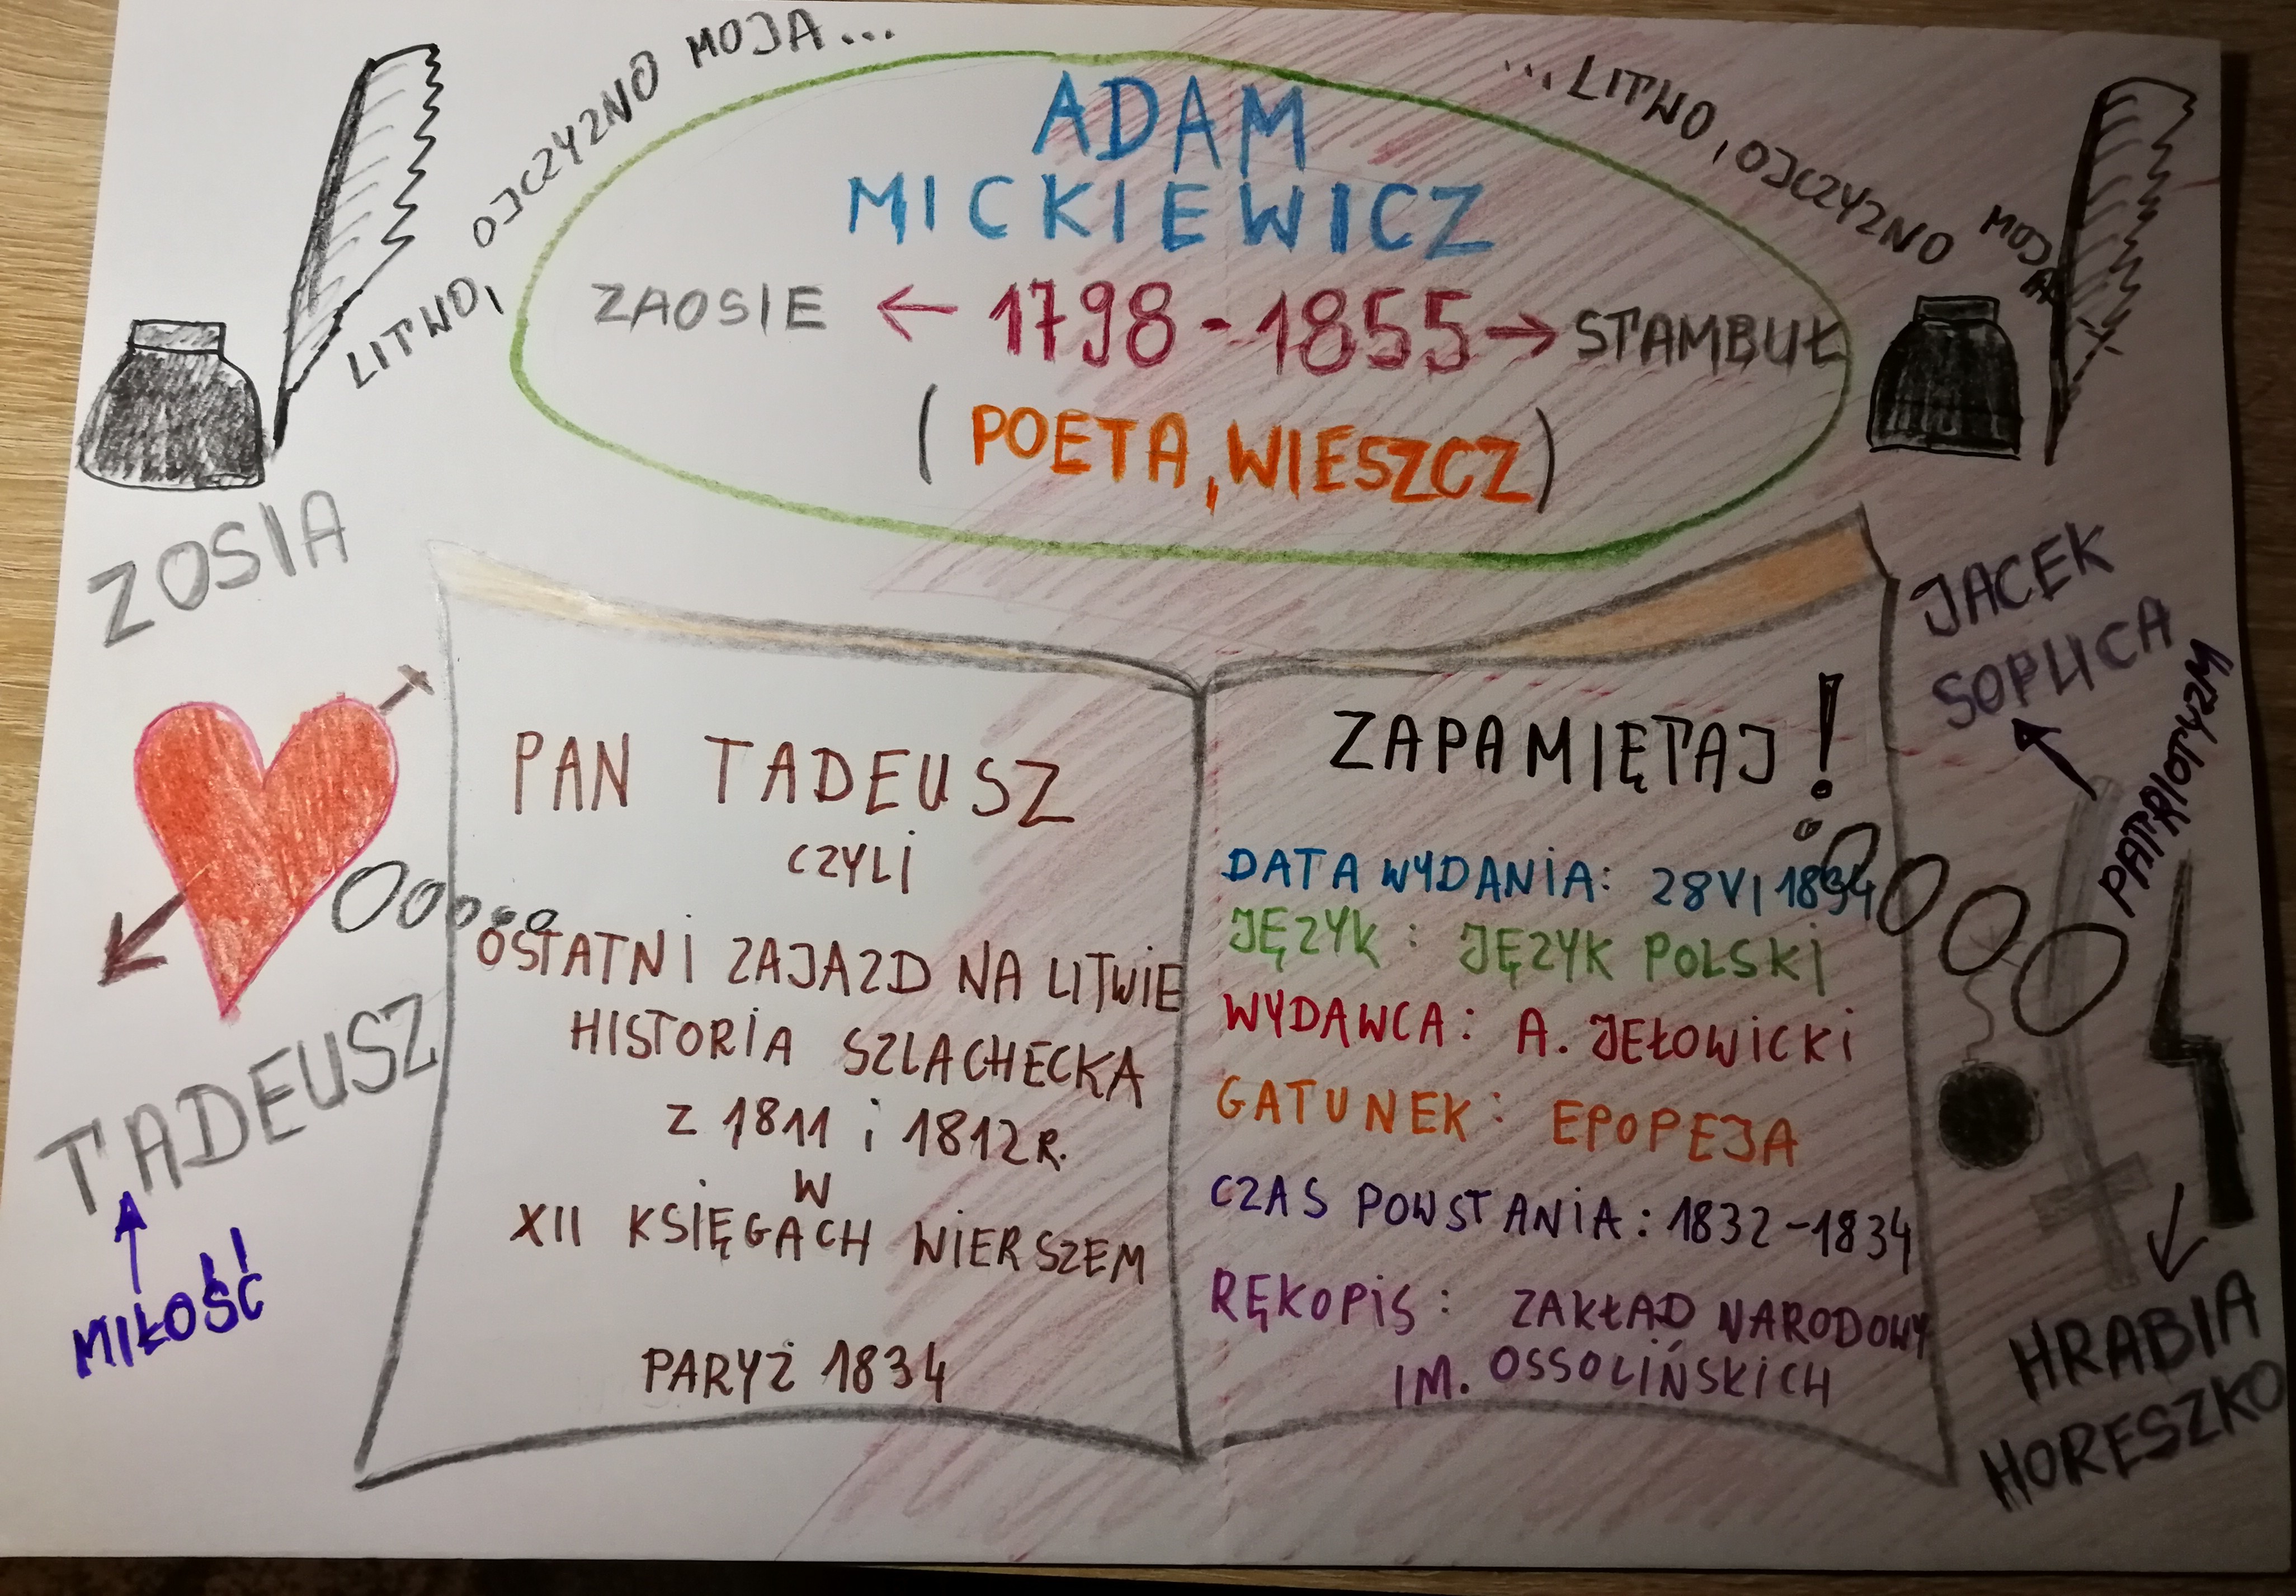 LITWO, OJCZYZNO MOJA...
...LITWO, OJCZYZNO MOJA
ADAM
MICKIEWICZ
ZAOSIE ← 1798 - 1855 → STAMBUŁ
( POETA, WIESZCZ)
ZOSIA
TADEUSZ
MIŁOŚĆ
PAN TADEUSZ
CZYLI
OSTATNI ZAJAZD NA LITWIE
HISTORIA SZLACHECKA
Z 1811 i 1812 R.
W
XII KSIĘGACH WIERSZEM
PARYŻ 1834
ZAPAMIĘTAJ!
DATA WYDANIA: 28 VI 1834
JĘZYK: JĘZYK POLSKI
WYDAWCA: A. JEŁOWICKI
GATUNEK: EPOPEJA
CZAS POWSTANIA: 1832-1834
RĘKOPIS: ZAKŁAD NARODOWY
IM. OSSOLIŃSKICH
JACEK
SOPLICA
PATRIOTYZM
HRABIA
HORESZKO